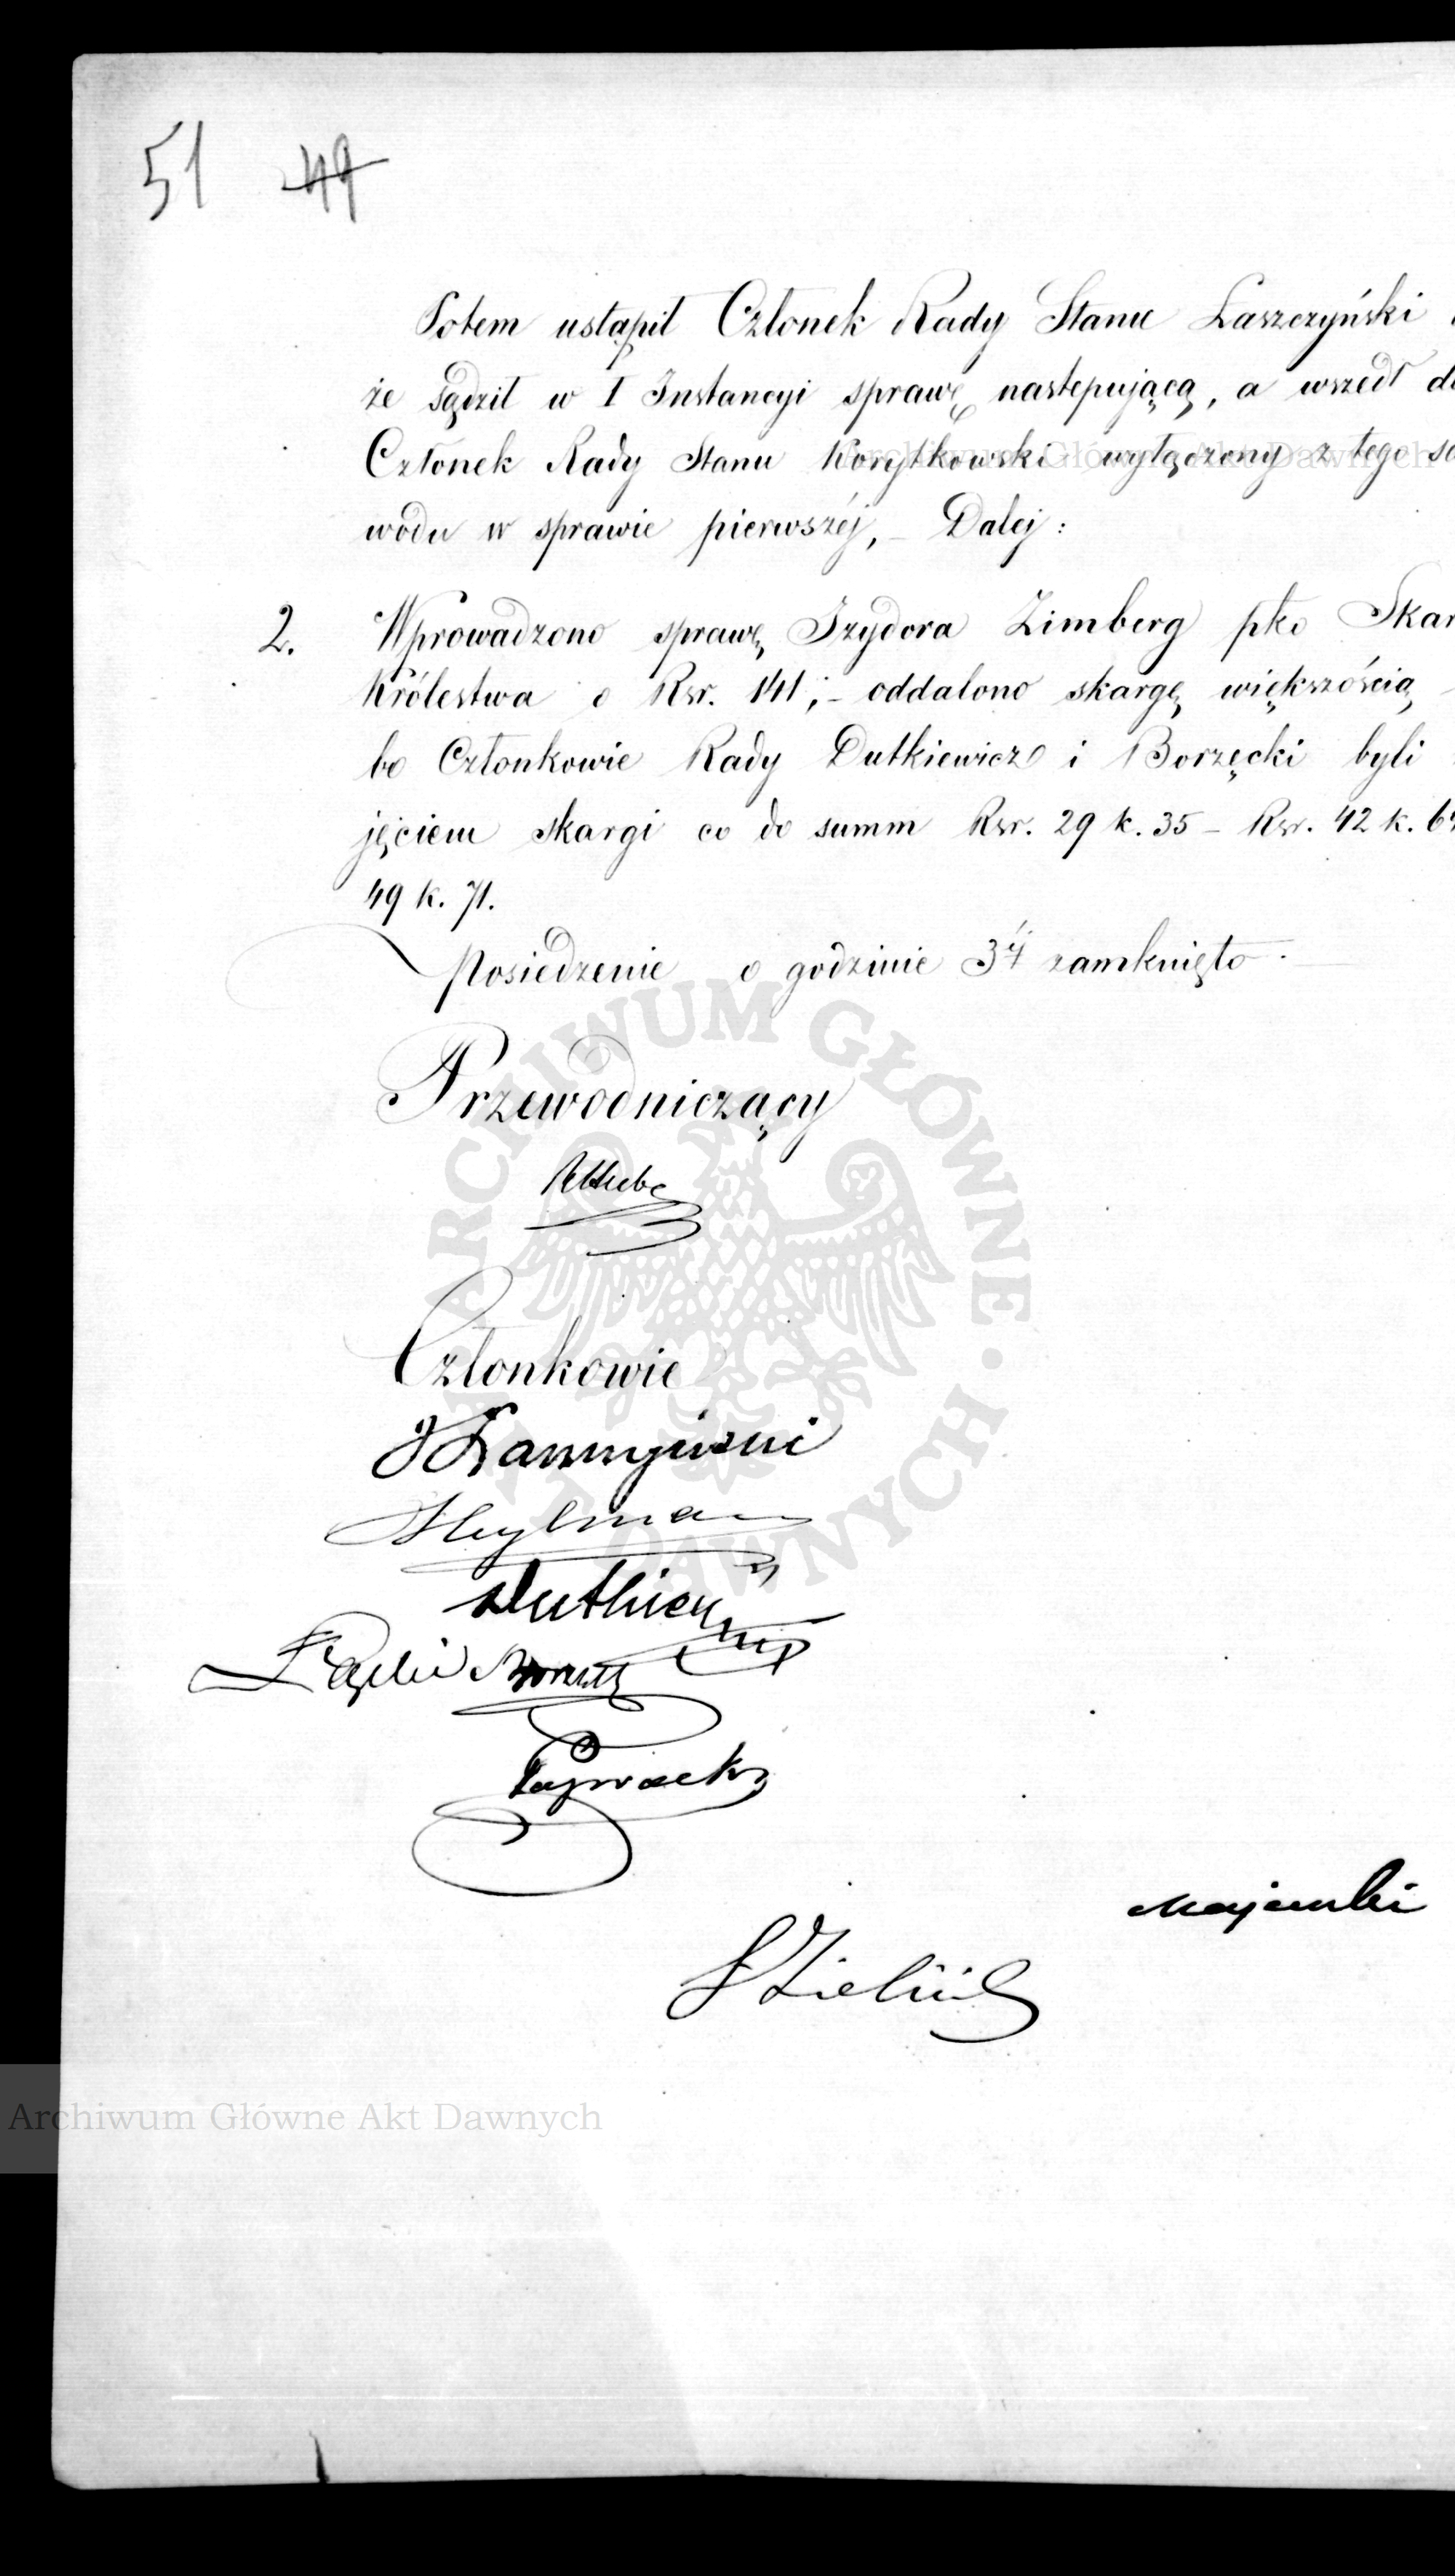 51 49
Potem ustąpił Członek Rady Stanu Łaszczyński
że sądził w I Instancyi sprawę następującą, a wszedł do
Członek Rady Stanu Korytkowski wyłączony z tego sa
wodu w sprawie pierwszéj, – Dalej:
2. Wprowadzono sprawę Izydora Zimberg pko Skar
Królestwa o Rsr. 141; – oddalono skargę większością
bo Członkowie Rady Dutkiewicz i Borzęcki byli
jęciem skargi co do summ Rsr. 29 k. 35 – Rsr. 42 k. 6
49 k. 71.
Posiedzenie o godzinie 3éj zamknięto.
Przewodniczący
RHube
Członkowie
JŁaszczyński
AHeylman
Dutkiewicz
Borzęcki
Majewski
Zieliński
Archiwum Główne Akt Dawnych